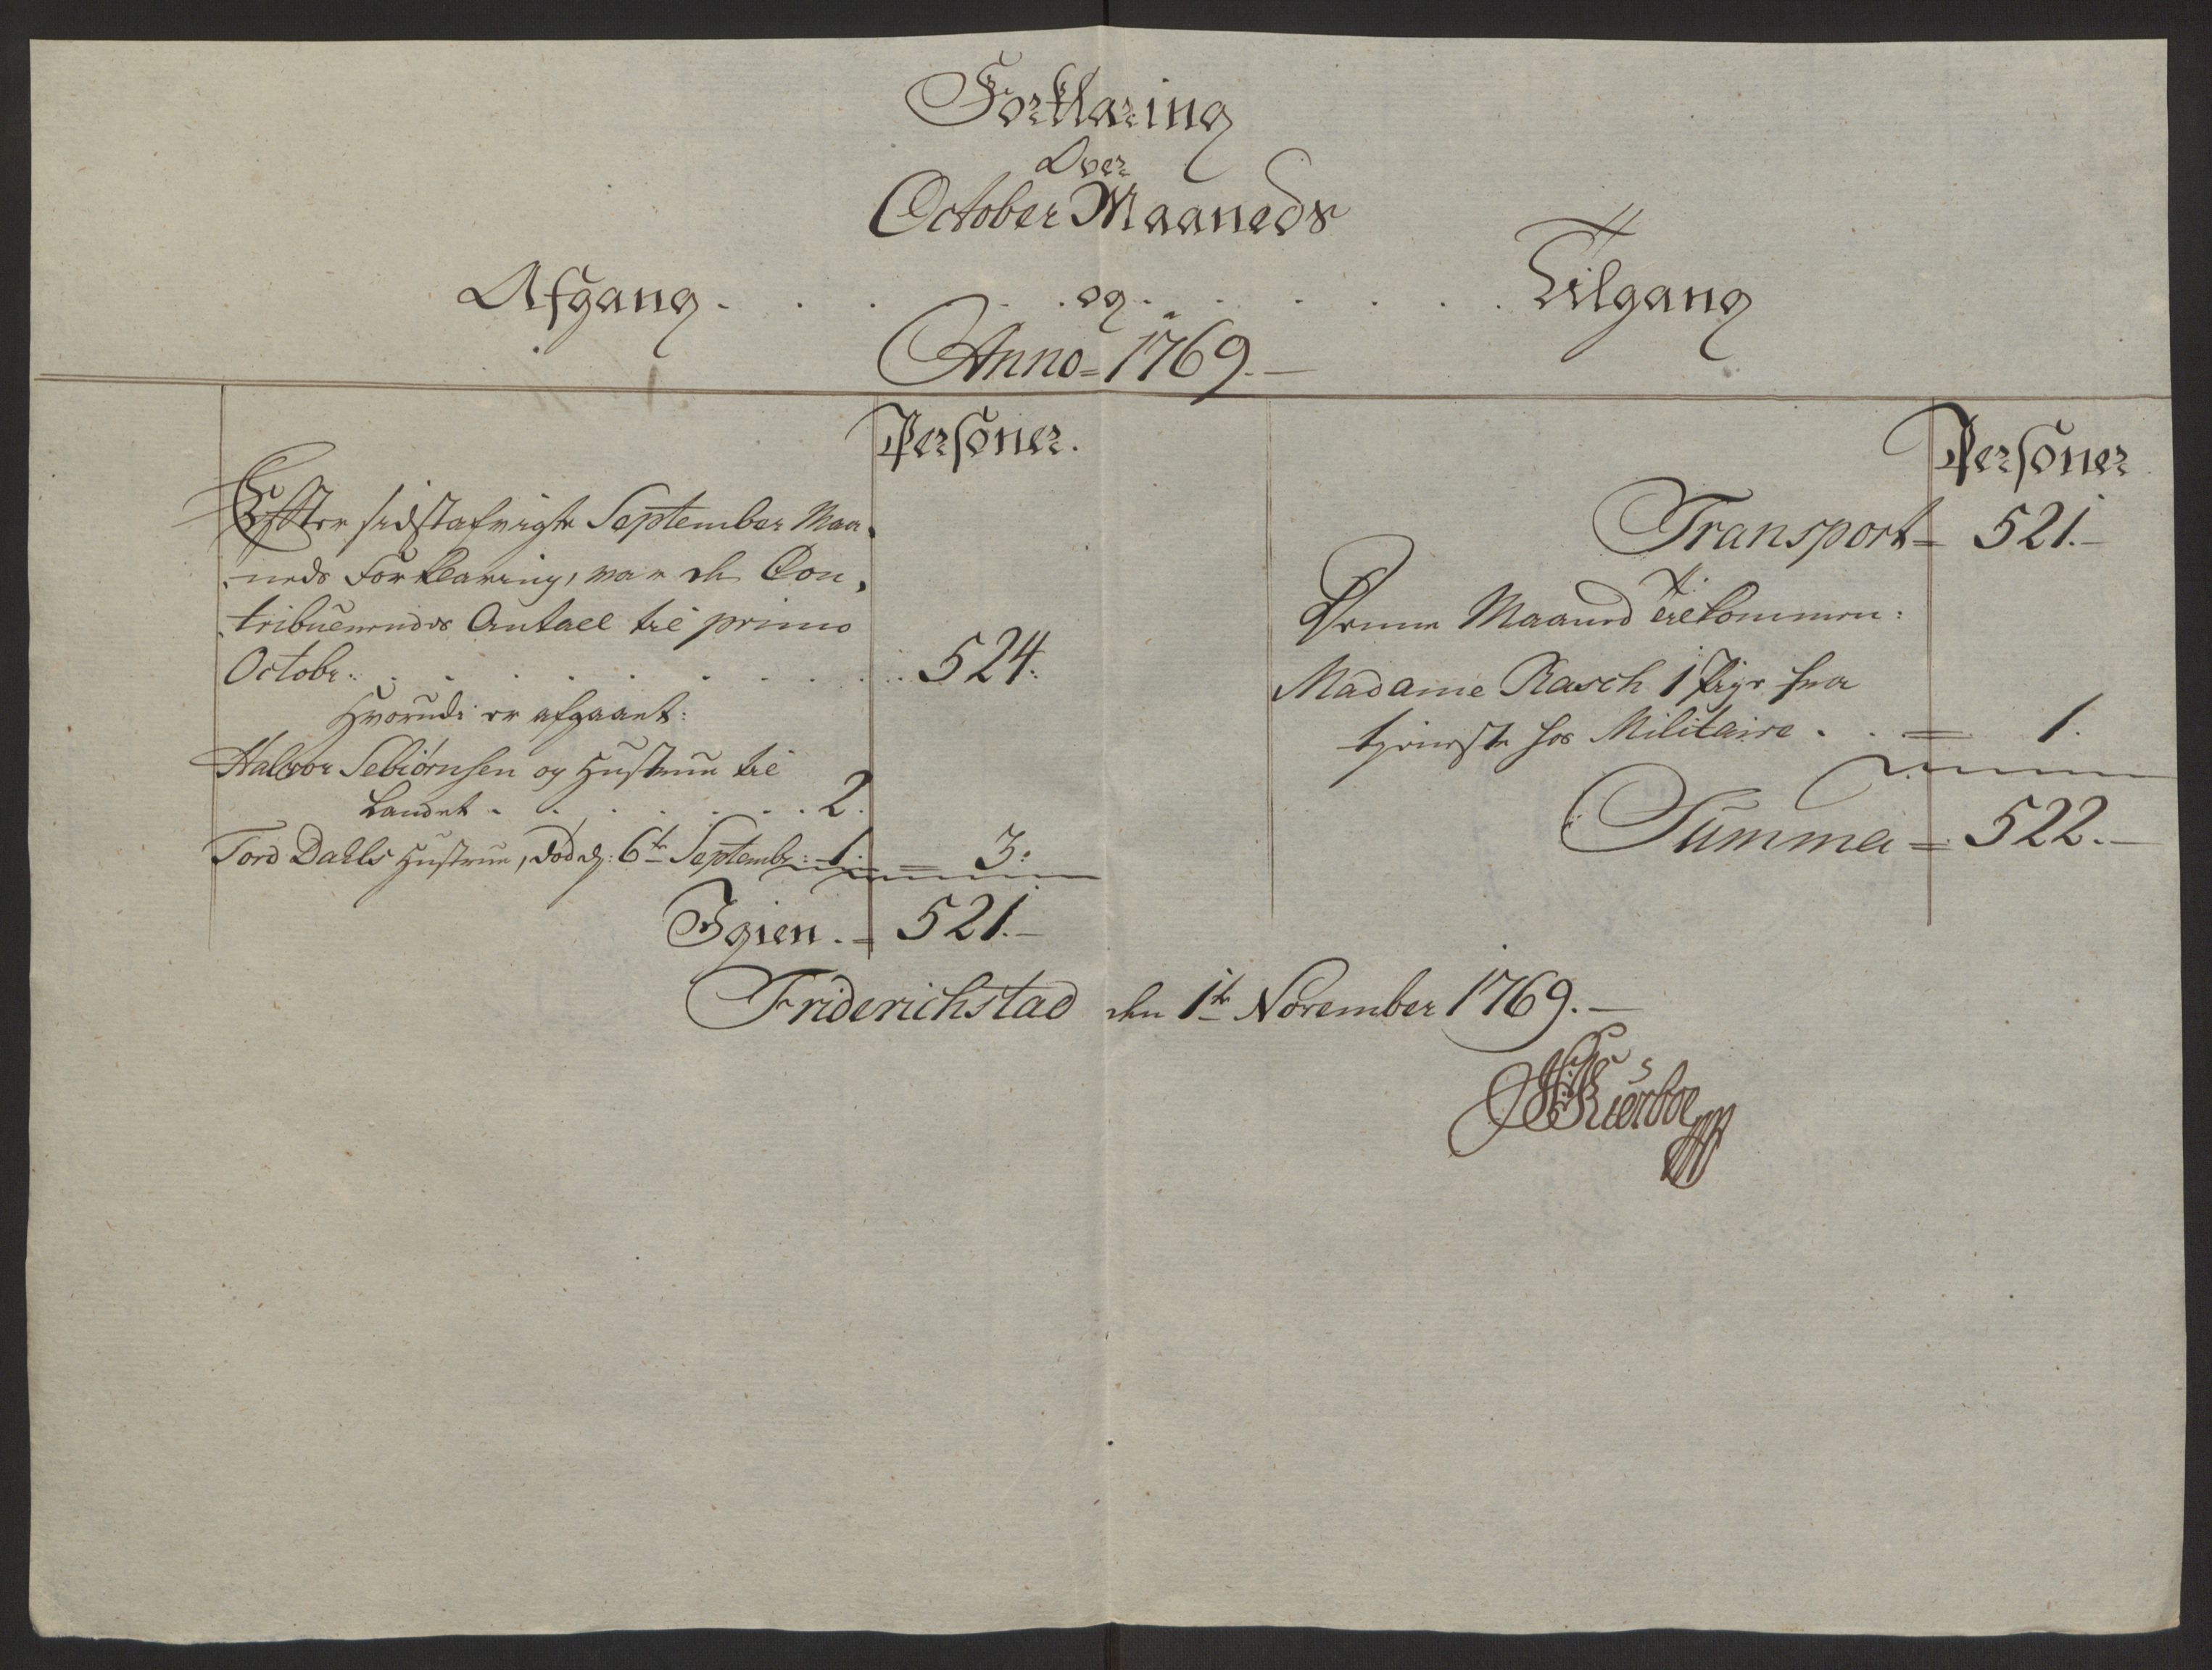 Forklaring
Over
October Maaneds
Afgang . . . . . og . . . . . Tilgang
Anno = 1769. —
Personer.
Effter sidstafvigte September Maa,
neds Forklaring, var de Con,
tribuerendes Antall til primo
Octobr: . . . . . . . . . 524.
Hvorudi er afgaaet:
Halvor Sebiørnsen og Hustrue til
Landet . . . . . . . 2.
Tord Dahls Hustrue, død d: 6te Septembr: 1. = 3.
Igien . = 521. —
Personer
Transport = 521. —
Denne Maaned tilkommen:
Madame Rasch 1 Pige fra
tieneste hos Militaire . . = 1.
Summa = 522. —
Friderichstad den 1te November 1769. —
Kierboe